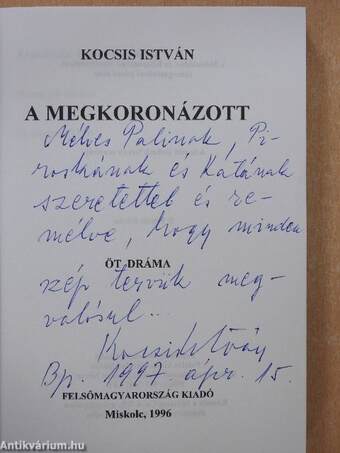 KOCSIS ISTVÁN
A MEGKORONÁZOTT
Méhes Palinak, Pi-
roskának és Katának
szeretettel és re-
mélve, hogy minden
ÖT DRÁMA
szép tervük meg-
valósul...
Kocsis István
Bp. 1997. ápr. 15.
FELSŐMAGYARORSZÁG KIADÓ
Miskolc, 1996
Antikvárium.hu